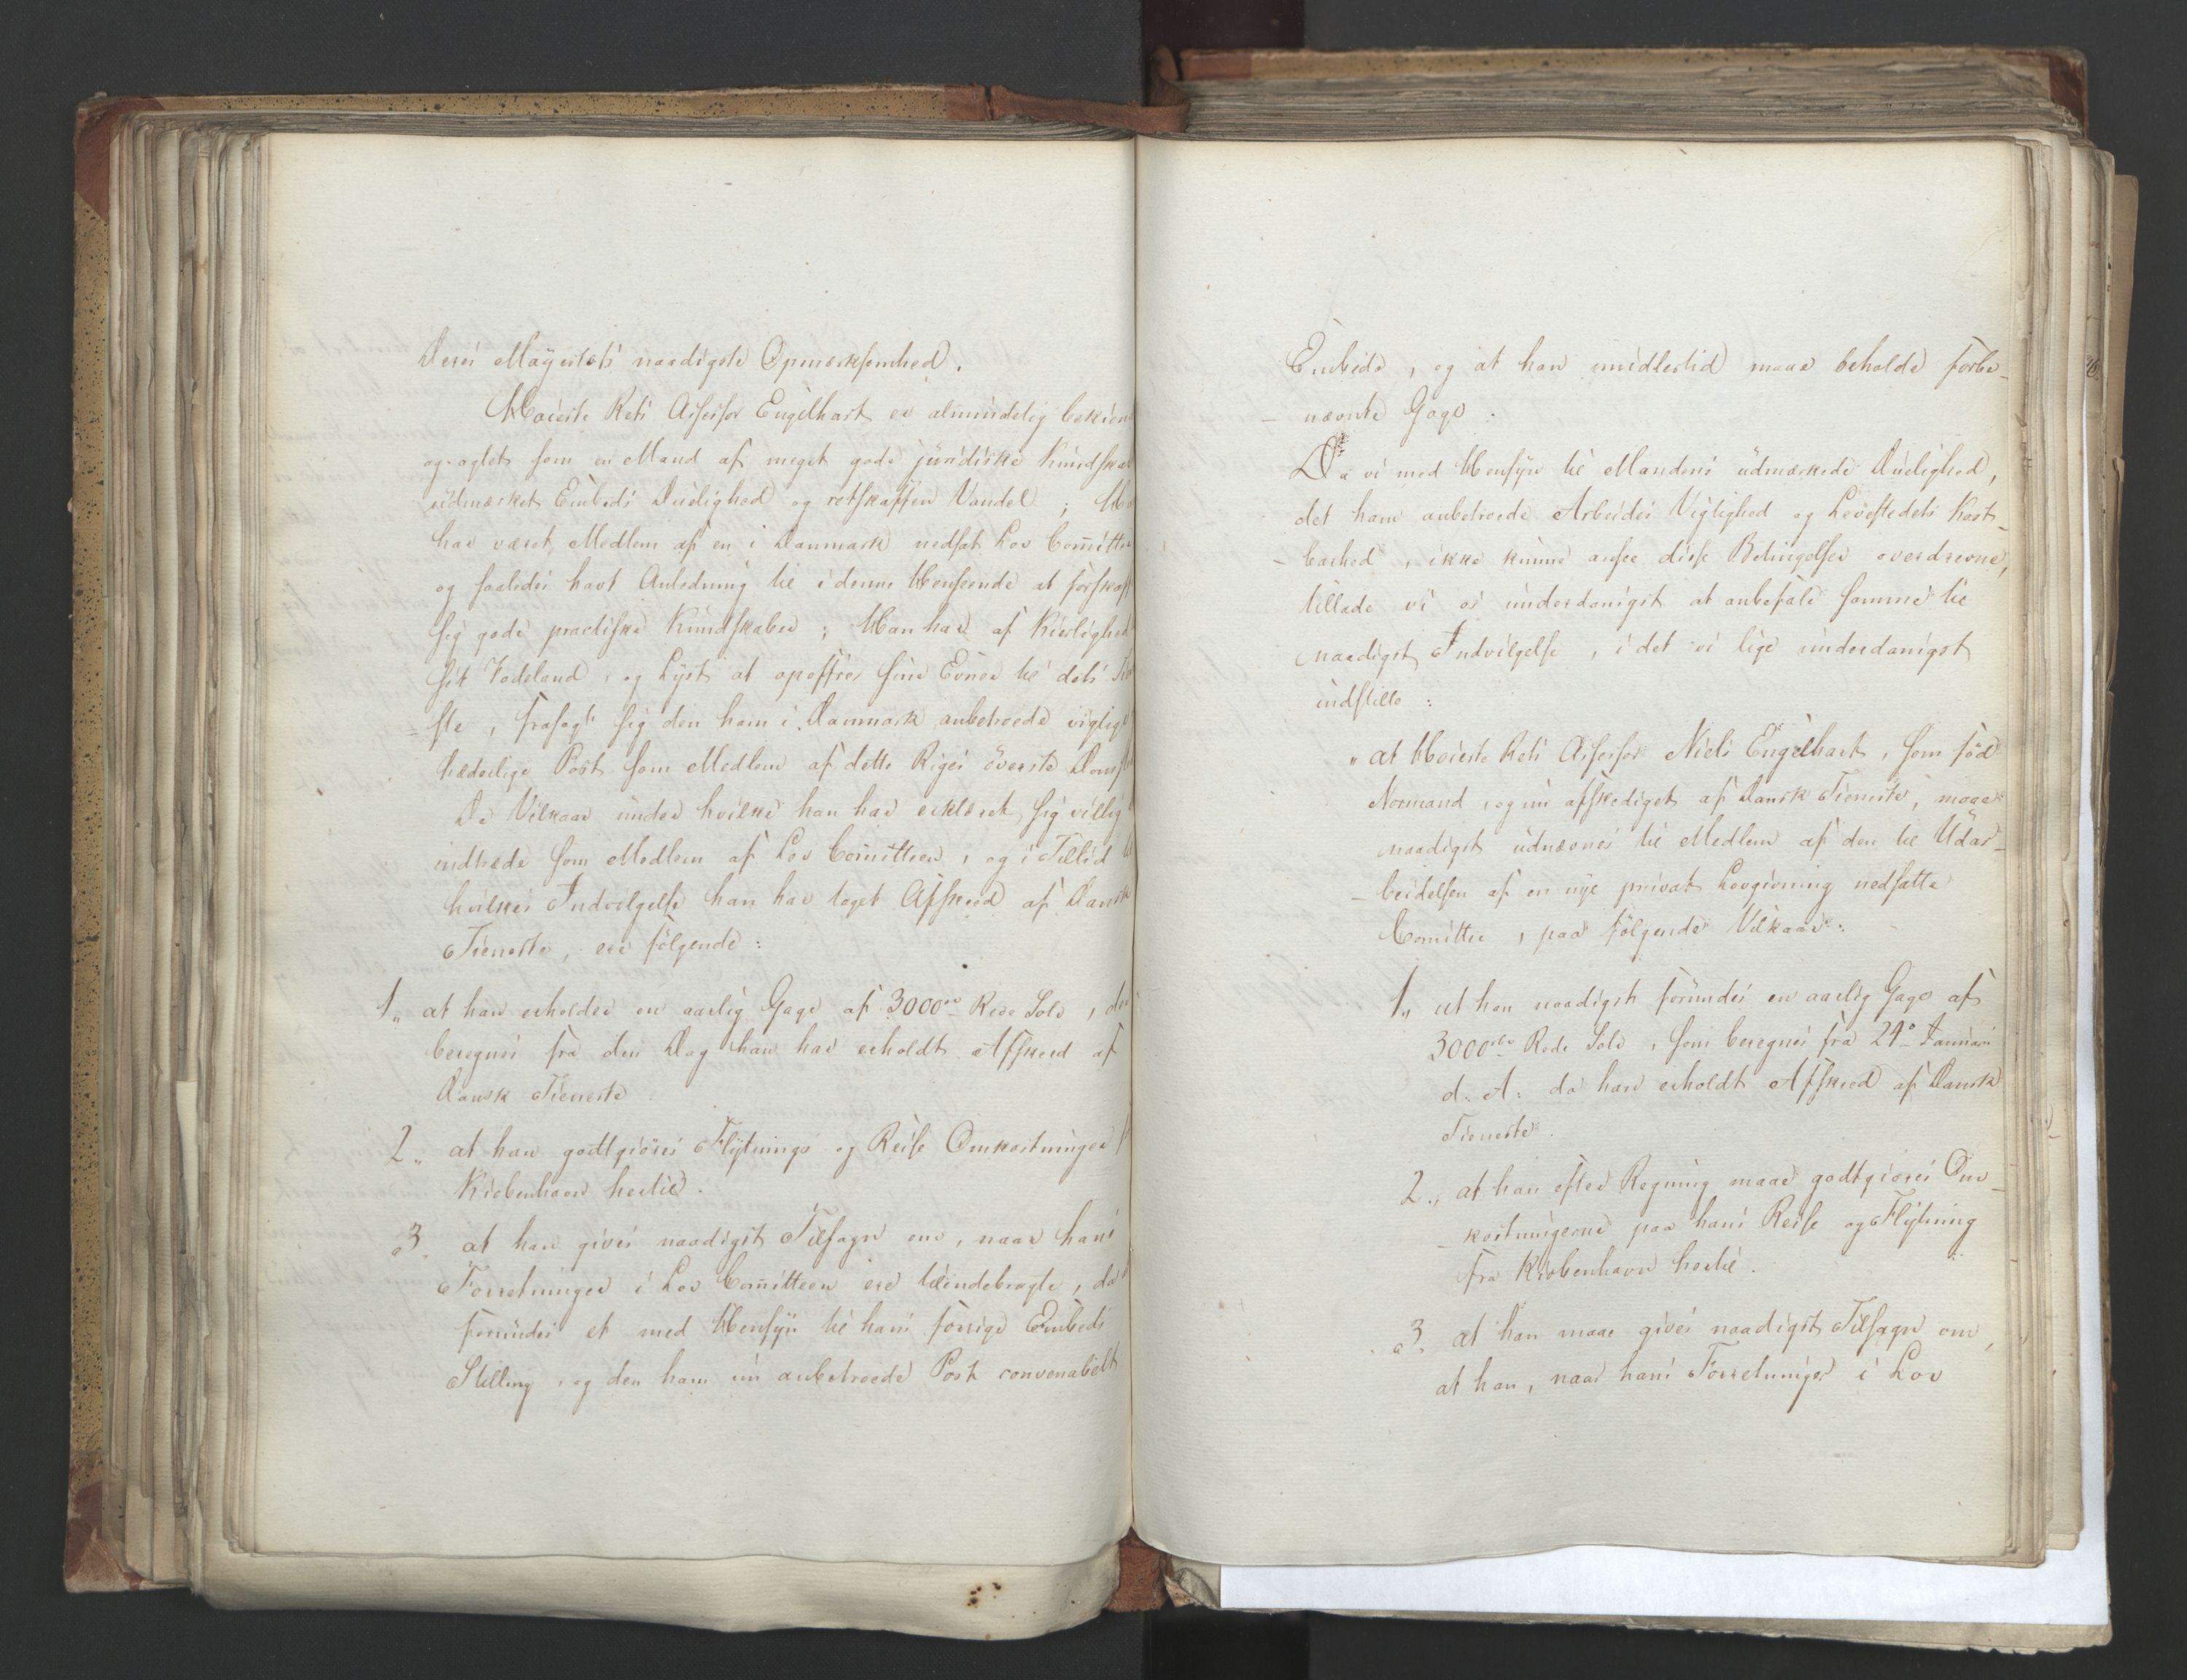 Deres Mayestets naadigste Opmærksomhed.
Høieste Rets Assessor Engelhart er almindelig bekien
og agtet som en Mand af meget gode juridiske Kundskab
udmærket Embeds Duelighed og retskaffen Vandel ;
har været Medlem af en i Danmark nedsat Lov Comitte
og saaledes havt Anledning til i denne Henseende at forskaff
sig gode practiske Kundskaber ; Han har af Kierlighed
sit Fødeland , og Lyst at opoffre sine Evner til dets
ste , frasagt sig den ham i Danmark anbetroede vigtige
hæderlige Post som Medlem af dette Riges överste Domst
De Vilkaar under hvilke han har erklæret sig villig
indtræde som Medlem af Lov Comitteen , og i Tillid
hvilkes Indvilgelse han har taget Afskeed af Dansk
Tieneste , ere følgende :
1„ at han erholder en aarlig Gage af 3000 Rede Sølv , der
beregnes fra den Dag han har erholdt Afskeed af
Dansk Tieneste
2„ at han godtgiöres Flytnings og Reise Omkostninger
Kiøbenhavn hertil .
3. at han gives naadigst Tilsagn om , naar hans
Forretninger i Lov Comitteen ere tilendebragte , da
forundes et med Hensyn til hans forrige Embeds
Stilling , og den ham nu anbetroede Post convenabelt
Embede , og at han imidlertid maae beholde forbe-
- nævnte Gage :
Da vi med Hensyn til Mandens udmærkede Duelighed,
det ham anbetroede Arbeides Vigtighed og Levestedets Kost-
- barhed , ikke kunne ansee disse Betingelser overdrevne,
tillade vi os underdanigst at anbefale samme til
naadigst Indvilgelse , i det vi lige underdanigst
indstille :
„ at Høieste Rets Assessor Niels Engelhart , som fød
Normand , og nu afskediget af Dansk Tieneste , maae
naadigst udnævnes til Medlem af den til Udar-
- beidelsen af en nye privat Lovgivning nedsatte
Comittee , paa følgende Vilkaar :
1„ at han naadigst forundes en aarlig Gage af
3000 Rede Sølv , som beregnes fra 24 Januari
d. A: da han erholdt Afskeed af Dansk
Tieneste .
2„ at han efter Regning maae godtgiöres Om-
- kostningerne paa hans Reise og Flytning
fra Kiøbenhavn hertil .
3. at han maae gives naadigst Tilsagn om ,
at han , naar hans Forretninger i Lov